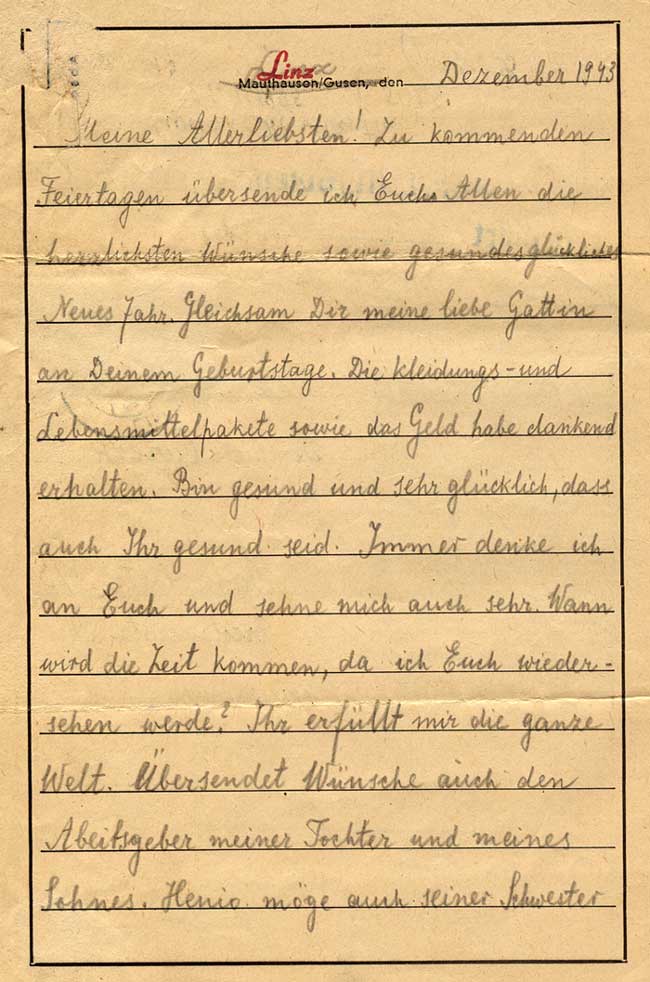 Linz
Mauthausen/Gusen, den Dezember 1943
Meine Allerliebsten! Zu kommenden
Feiertagen übersende ich Euch Allen die
herzlichsten Wünsche sowie gesundes glückliches
Neues Jahr. Gleichsam Dir meine liebe Gattin
an Deinem Geburtstage. Die Kleidungs- und
Lebensmittelpakete sowie das Geld habe dankend
erhalten. Bin gesund und sehr glücklich, dass
auch Ihr gesund seid. Immer denke ich
an Euch und sehne mich auch sehr. Wann
wird die Zeit kommen, da ich Euch wieder-
sehen werde? Ihr erfüllt mir die ganze
Welt. Übersendet Wünsche auch den
Abeitsgeber meiner Tochter und meines
Sohnes. Henio möge auch seiner Schwester